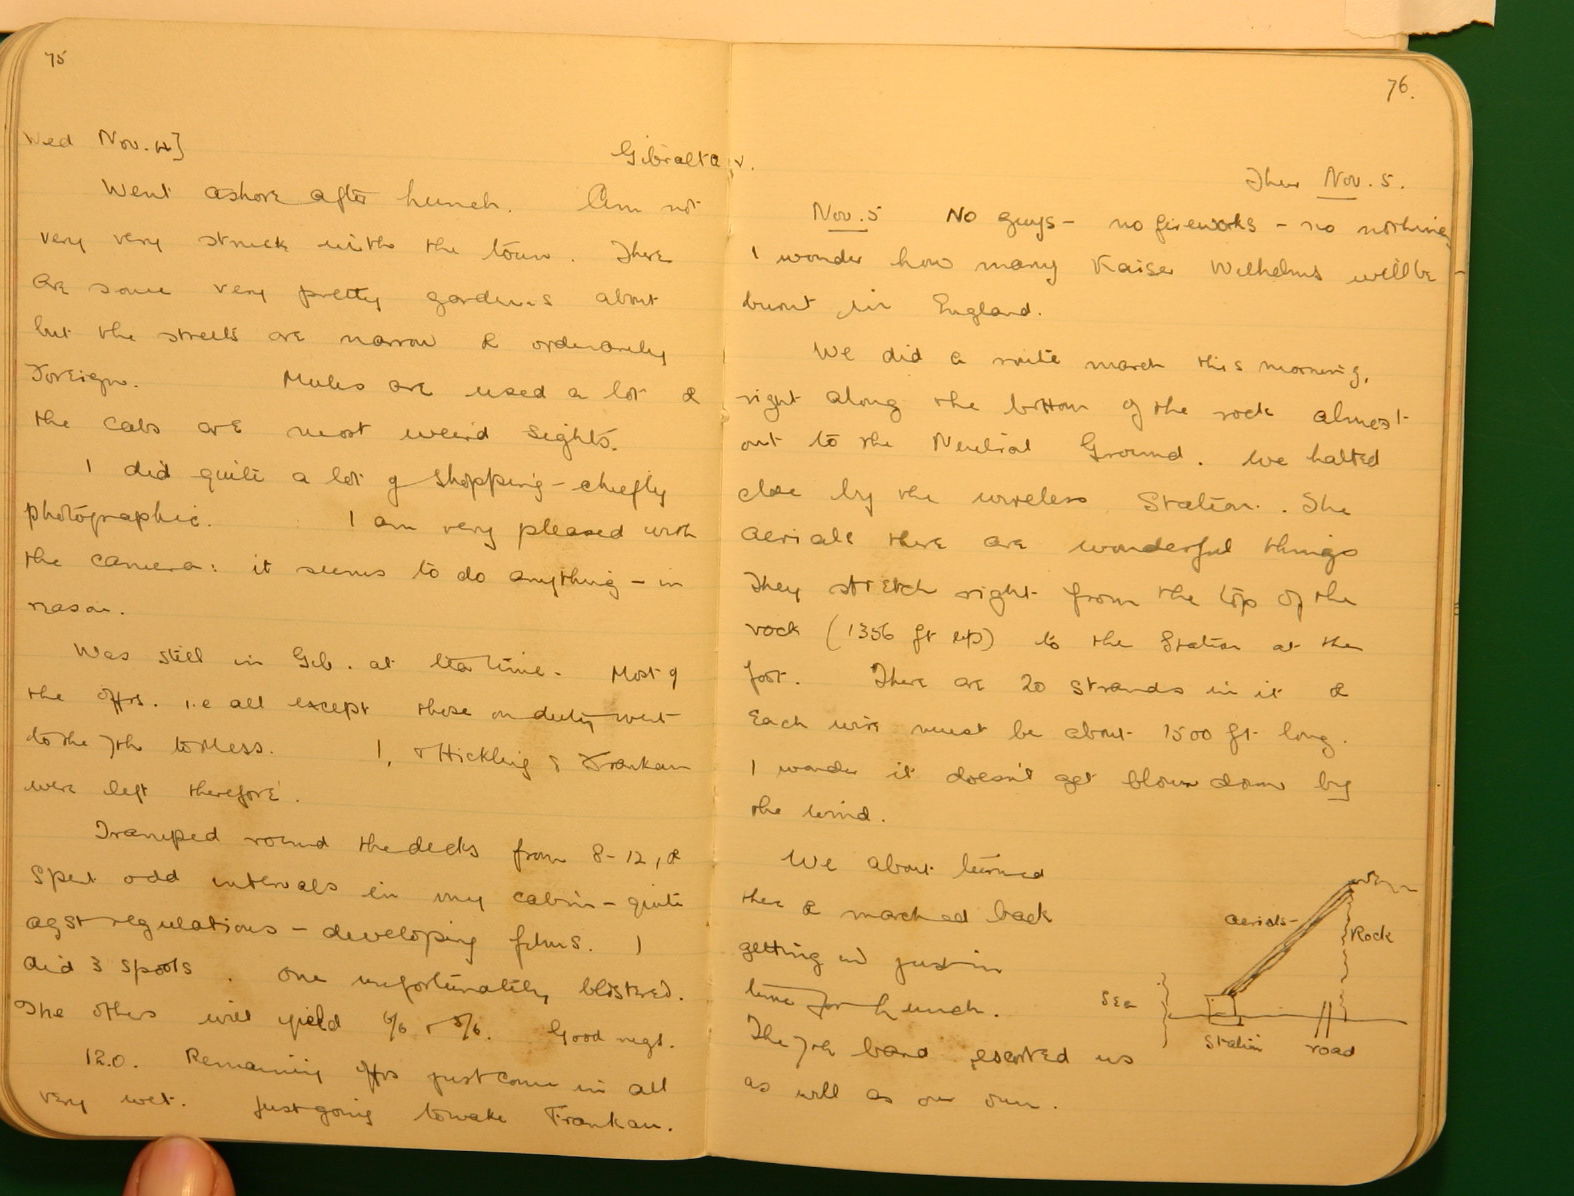 75
Wed Nov. 4]
Gibraltar.
Went ashore after lunch. Am not
very very struck with the town. There
are some very pretty gardens about
but the streets are narrow & ordinarily
Foreign. Mules are used a lot &
the cabs are most weird sights.
I did quite a lot of shopping - chiefly
photographic. I am very pleased with
the camera: it seems to do anything - in
reason.
Was still in Gib. at tea time. Most of
the offrs. i.e all except those on duty went
to the 7th to Mess. I, & Hickling & Frankau
were left therefore.
Tramped round the decks from 8-12, &
spent odd intervals in my cabin - quite
agst regulations - developing films. I
did 3 spools. One unfortunately blistered.
The others will yield 6/6 & 5/6. Good night.
12.0. Remaining offrs just come in all
very wet. Just going to wake Frankau.
76.
Thur Nov. 5.
Nov. 5 No guys - no fireworks - no nothing
I wonder how many Kaiser Wilhelms will be
burnt in England.
We did a route march this morning,
right along the bottom of the rock almost
out to the Neutral Ground. We halted
close by the wireless Station. The
aerials there are wonderful things
They stretch right from the top of the
rock (1356 ft up) to the Station at the
foot. There are 20 strands in it &
Each wire must be about 1500 ft long.
I wonder it doesn't get blown down by
the wind.
We about turned
there & marched back
getting in just in
time for lunch.
The 7th band escorted us
as well as our own.
aerials
Rock
Sea
Station
road